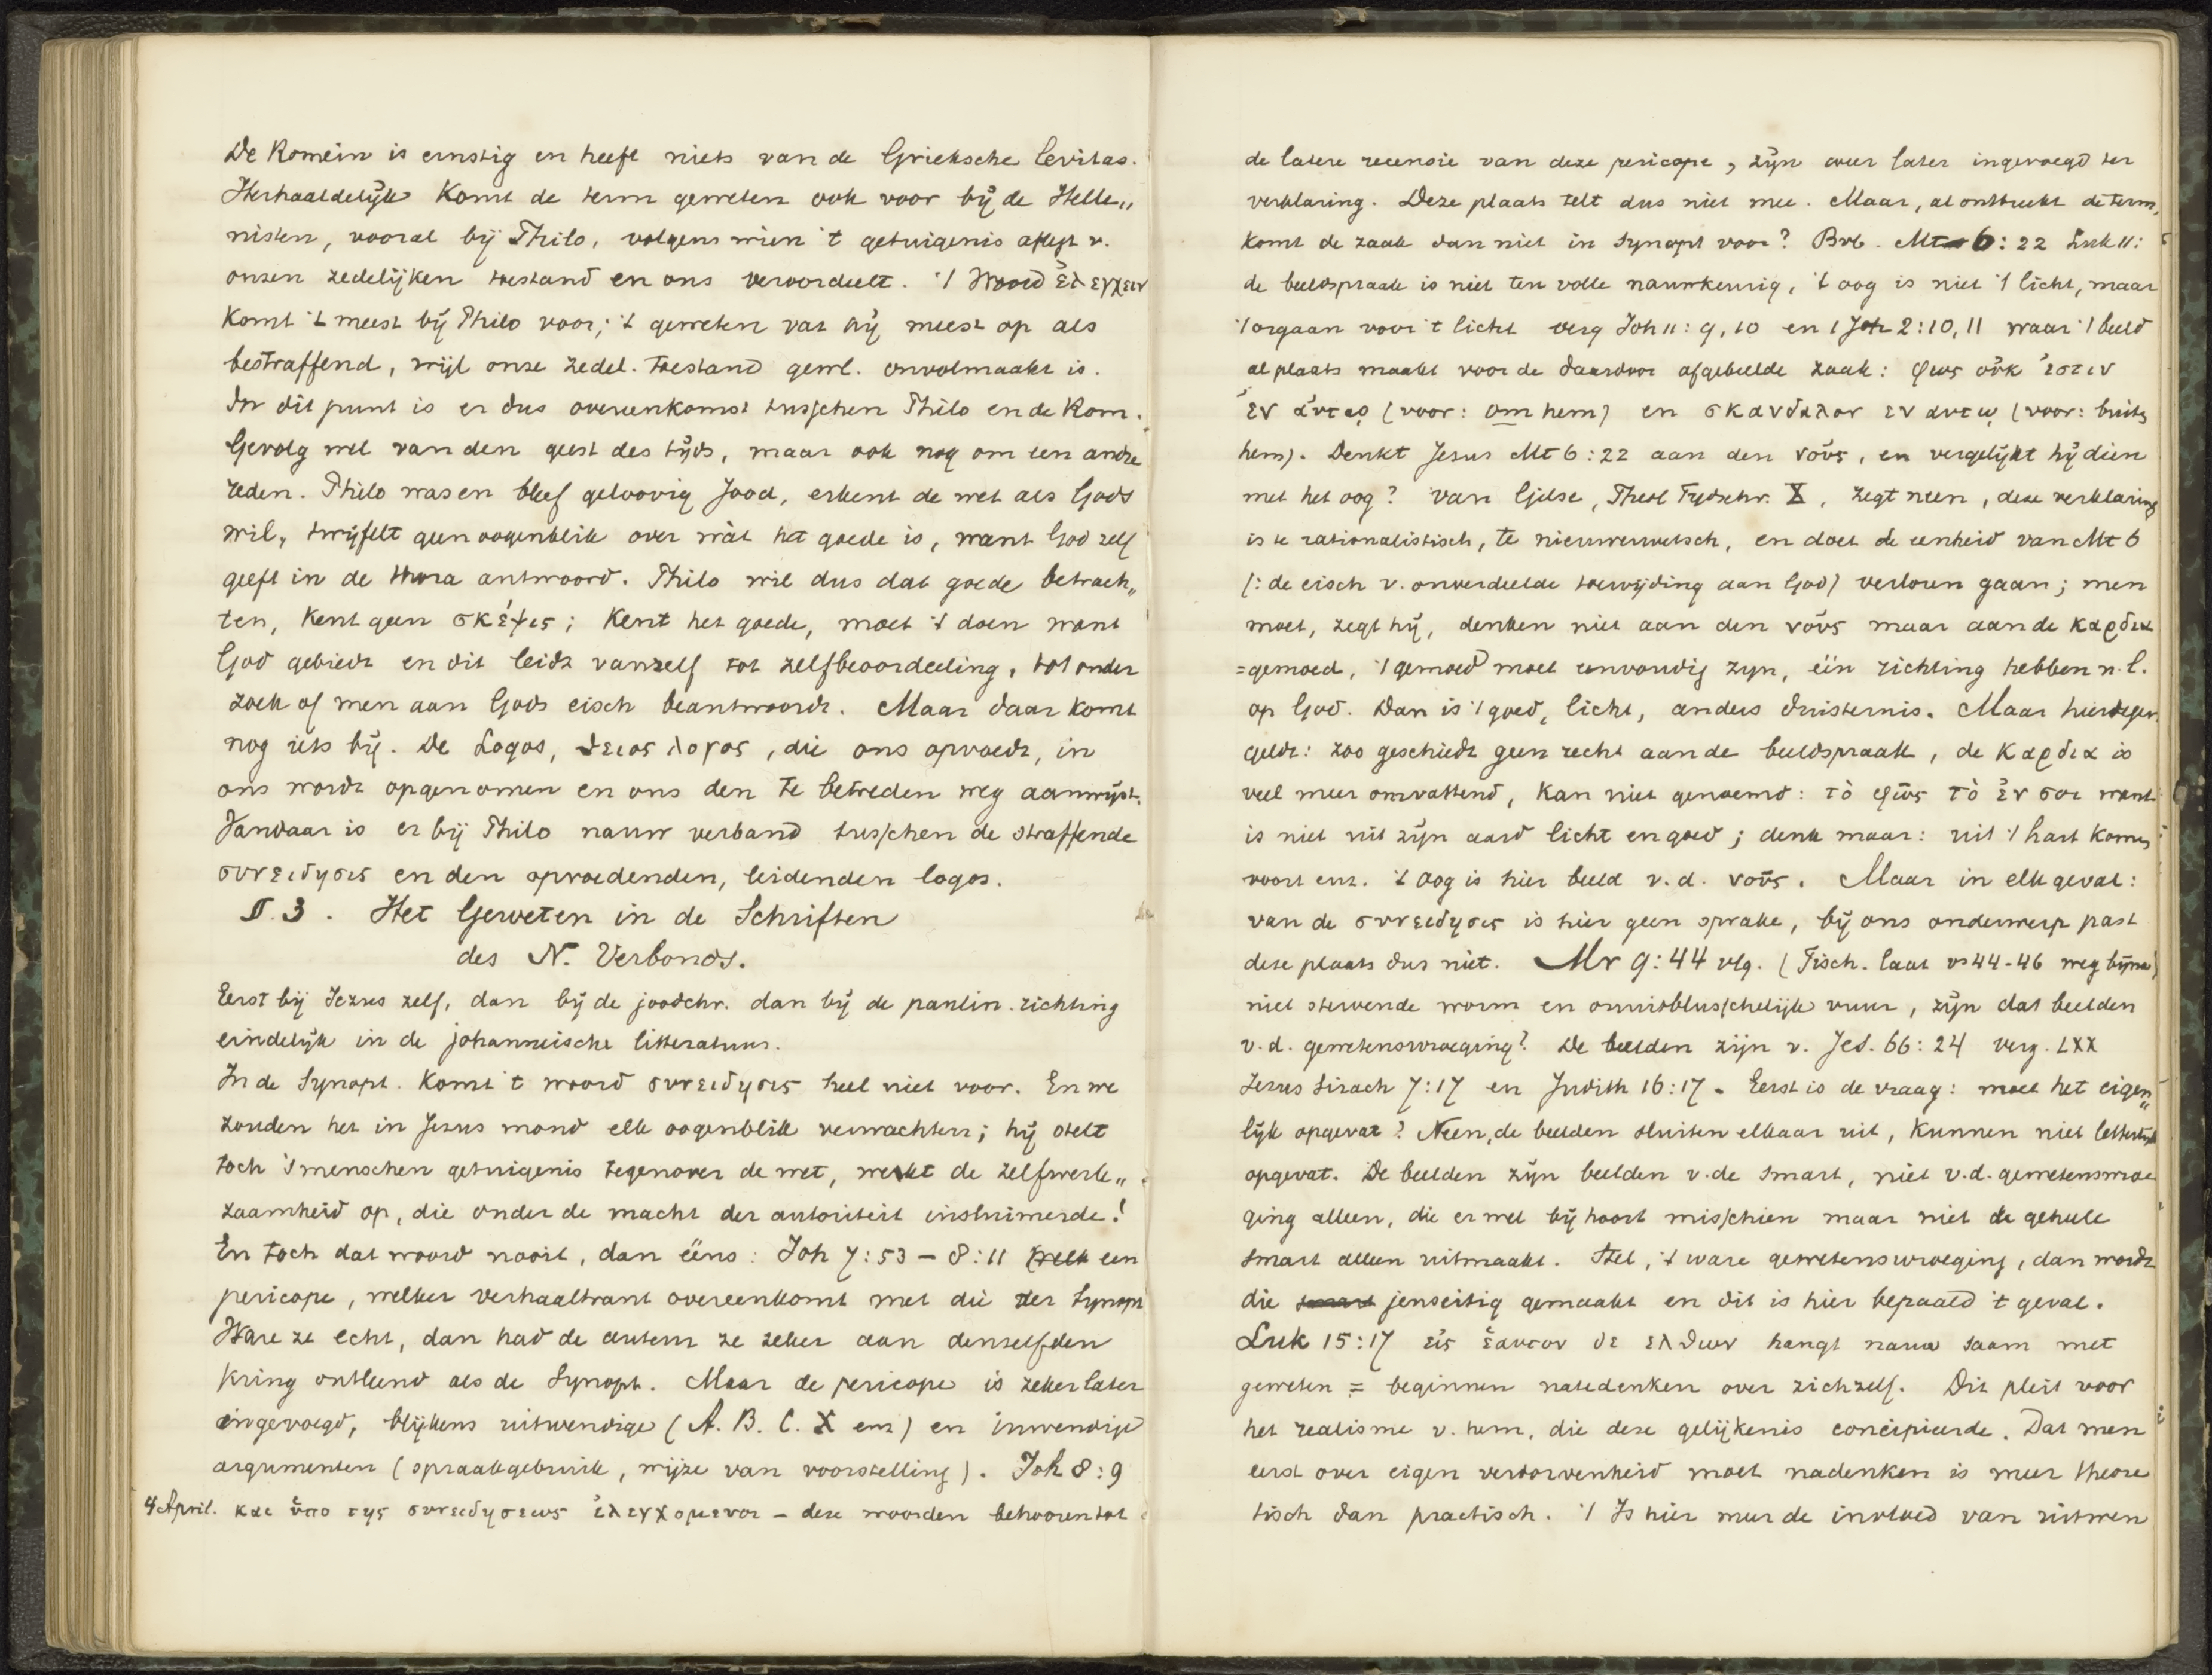 De Romein is ernstig en heeft niets van de Grieksche levitas.
Herhaaldelijk komt de term geweten ook voor bij de Helle„
nisten, vooral bij Philo, volgens wien 't getuigenis aflegt v.
onzen zedelijken toestand en ons veroordeelt. 't Woord ἐλεγχειν
komt 't meest bij Philo voor; 't geweten vat hij meest op als
bestraffend, wijl onze zedel. toestand gewl. onvolmaakt is.
In dit punt is er dus overeenkomst tusschen Philo en de Rom.
Gevolg wel van den geest des tijds, maar ook nog om een andre
reden. Philo was en bleef geloovig Jood, erkent de wet als Gods
wil, twijfelt geen oogenblik over wàt het goede is, want God zelf
geeft in de thora antwoord. Philo wil dus dat goede betrach„
ten, kent geen σκέψις; kent het goede, moet 't doen want
God gebiedt en dit leidt vanzelf tot zelfbeoordeeling, tot onder
zoek of men aan Gods eisch beantwoordt. Maar daar komt
nog iets bij. De Logos, θειος λογος, die ons opvoedt, in
ons wordt opgenomen en ons den te betreden weg aanwijst.
Vandaar is er bij Philo nauw verband tusschen de straffende
συνειδησις en den opvoedenden, leidenden logos.
§. 3. Het Geweten in de Schriften
des N. Verbonds.
Eerst bij Jezus zelf, dan bij de joodchr. dan bij de paulin. richting
eindelijk in de johanneische litteratuur.
In de Synopt. komt 't woord συνειδησις heel niet voor. En we
zouden het in Jezus mond elk oogenblik verwachten; hij stelt
toch 's menschen getuigenis tegenover de wet, wekt de zelfwerk„
zaamheid op, die onder de macht der autoriteit insluimerde!
En toch dat woord nooit, dan ééns: Joh 7:53 – 8:11 welk een
pericope, welker verhaaltrant overeenkomt met die der Synopt
Ware ze echt, dan had de auteur ze zeker aan denzelfden
kring ontleend als de Synopt. Maar de pericope is zeker later
ingevoegd, blijkens uitwendige (A. B. C. X enz) en inwendige
argumenten (spraakgebruik, wijze van voorstelling). Joh 8:9
4 April. και ὑπο της συνειδησεως ἐλεγχομενοι – deze woorden behooren tot
de latere recensie van deze pericope, zijn weer later ingevoegd ter
verklaring. Deze plaats telt dus niet mee. Maar, al ontbreekt de term,
komt de zaak dan niet in Synopt voor? Bvb. Mt 6:22 Luk 11:
de beeldspraak is niet ten volle nauwkeurig, 't oog is niet 't licht, maar
't orgaan voor 't licht verg Joh 11:9,10 en 1 Joh 2:10,11 waar 't beeld
al plaats maakt voor de daardoor afgebeelde zaak: φως οὐκ ἐστιν
ἐν ἀυτῳ (voor: om hem) en σκανδαλον εν αυτῳ (voor: buiten
hem). Denkt Jezus Mt 6:22 aan den νοῦς, en vergelijkt hij dien
met het oog? van Gjelse, Theol Tydschr. X, zegt neen, deze verklaring
is te rationalistisch, te nieuwerwetsch, en doet de eenheid van Mt 6
(: de eisch v. onverdeelde toewijding aan God) verloren gaan; men
moet, zegt hij, denken niet aan den νοῦς maar aan de καρδια
=gemoed, 't gemoed moet eenvoudig zyn, één richting hebben n.l.
op God. Dan is 't goed, licht, anders duisternis. Maar hiertegen
geldt: zoo geschiedt geen recht aan de beeldspraak, de καρδια is
veel meer omvattend, kan niet genoemd: τὸ φῶς τὸ ἐν σοι want
is niet uit zijn aard licht en goed; denk maar: uit 't hart komen
voort enz. 't oog is hier beeld v. d. νοῦς. Maar in elk geval:
van de συνειδησις is hier geen sprake, bij ons onderwerp past
deze plaats dus niet. Mr 9:44 vlg. (Tisch. laat vs 44-46 weg
niet stervende worm en onuitblusschelijk vuur, zijn dat beelden
v. d. gewetenswroeging? De beelden zijn v. Jes. 66:24 verg. LXX
Jezus Sirach 7:17 en Judith 16:17. Eerst is de vraag: moet het eigen„
lijk opgevat? Neen, de beelden sluiten elkaar uit, kunnen niet letterlijk
opgevat. De beelden zijn beelden v. de smart, niet v.d. gewetenswroe
ging alleen, die er wel bij hoort misschien maar niet de geheele
smart alleen uitmaakt. Stel, 't ware gewetenswroeging, dan wordt
die smart jenseitig gemaakt en dit is hier bepaald 't geval.
Luk 15:17 εἰς ἑαυτον δε ελθων hangt nauw saam met
geweten = beginnen natedenken over zichzelf. Dit pleit voor
het realisme v. hem, die deze gelijkenis concipieerde. Dat men
eerst over eigen verdorvenheid moet nadenken is meer theore
tisch dan practisch. 't Is hier meer de invloed van uitwen